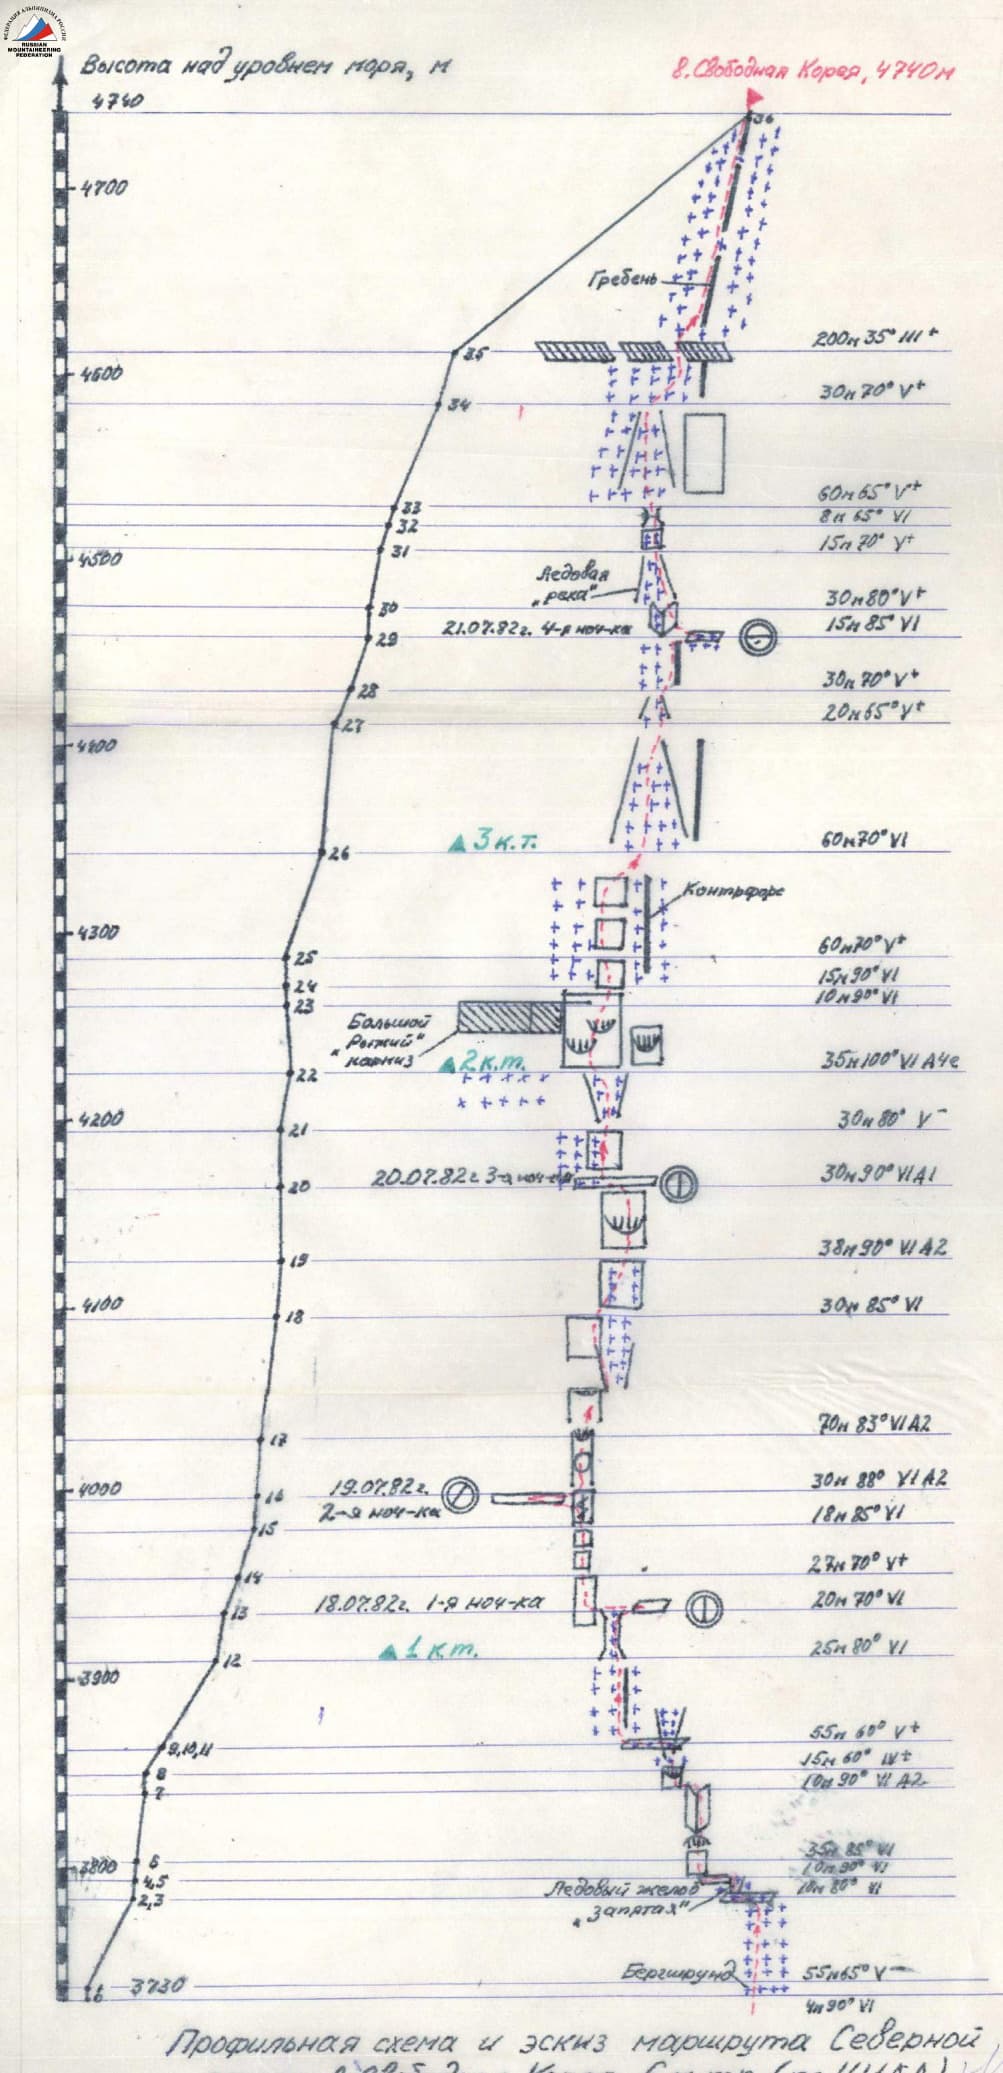 ФЕДЕРАЦИЯ АЛЬПИНИЗМА РОССИИ
RUSSIAN
MOUNTAINEERING
FEDERATION
Высота над уровнем моря, м
в.Свободная Корея, 4740м
4740
36
4700
Гребень
200м 35° III+
35
4600
30м 70° V+
34
60м 65° V+
33
8м 65° VI
32
15м 70° V+
31
4500
Ледовая
"река"
30м 80° V+
30
21.07.82г. 4-я ноч-ка
15м 85° VI
29
30м 70° V+
28
20м 65° V+
27
4400
3 к.т.
60м 70° VI
26
Контрфорс
4300
60м 70° V+
25
15м 90° VI
24
10м 90° VI
23
Большой
"Рыжий"
карниз
2 к.т.
35м 100° VI A4e
22
4200
30м 80° V-
21
20.07.82г 3-я ноч-ка
30м 90° VI A1
20
38м 90° VI A2
19
4100
30м 85° VI
18
70м 83° VI A2
17
4000
19.07.82г.
2-я ноч-ка
30м 88° VI A2
16
18м 85° VI
15
27м 70° V+
14
18.07.82г. 1-я ноч-ка
20м 70° VI
13
1 к.т.
25м 80° VI
12
3900
55м 60° V+
9,10,11
15м 60° IV+
8
10м 90° VI A2
7
35м 85° VI
6
3800
10м 90° VI
4,5
10м 80° VI
2,3
Ледовый желоб
"Запятая"
Бергшрунд
55м 65° V-
3730
4м 90° VI
Профильная схема и эскиз маршрута Северной